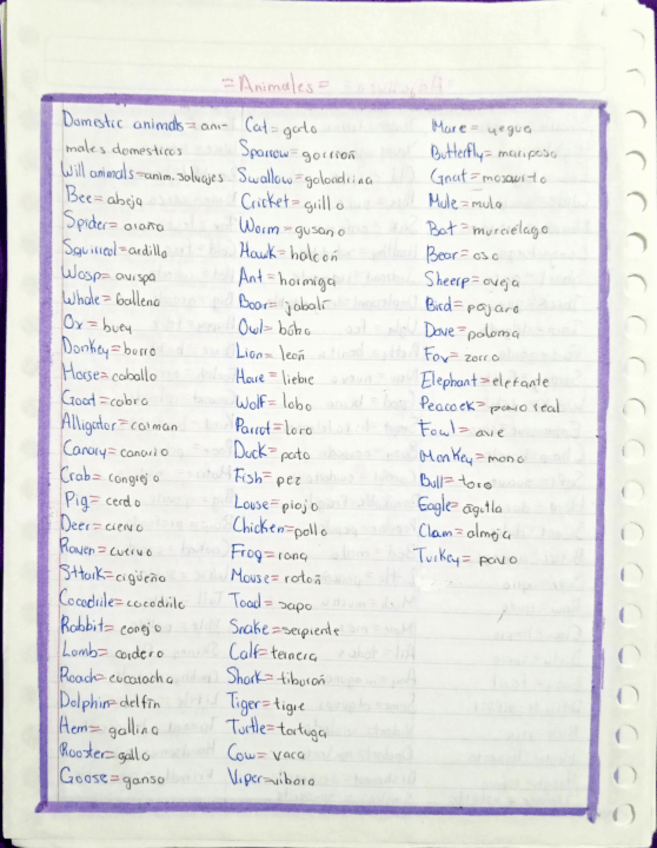 =Animales=
Domestic animals= ani-
males domesticos
Will animals=anim. salvajes
Bee= abeja
Spider= araña
Squirrel=ardilla
Wasp= avispa
Whale= ballena
Ox= buey
Donkey= burro
Horse= caballo
Goat=cabra
Alligator=caiman
Canary= canario
Crab= congrejo
Pig= cerdo
Deer= ciervo
Raven= cuervo
Sttork=cigüeña
Cocodrile=cocodrilo
Rabbit= conejo
Lamb= cordero
Roach=cucaracha
Dolphin=delfín
Hem= gallina
Rooster=gallo
Goose=ganso
Cat= gato
Sparrow=gorrion
Swallow=golondrina
Cricket=grillo
Worm=gusano
Hawk=halcon
Ant=hoimiga
Boar=jabalí
Owl=búho
Lion=leon
Hare=liebre
Wolf=lobo
Parrot=loro
Duck=pato
Fish=pez
Louse=piojo
Chicken=pollo
Frog=rana
Mouse=raton
Toad=sapo
Snake=serpiente
Calf=ternera
Shark=tiburon
Tiger=tigre
Turtle=tortuga
Cow=vaca
Viper=vibora
Mare= yegua
Butterfly=mariposa
Gnat=mosquito
Mule=mula
Bat=murcielago
Bear=oso
Sheerp=oveja
Bird=pajaro
Dove=paloma
Fox=zorro
Elephant=elefante
Peacock=pavo real
Fowl=ave
Monkey=mono
Bull=toro
Eagle=águila
Clam=almeja
Turkey=pavo